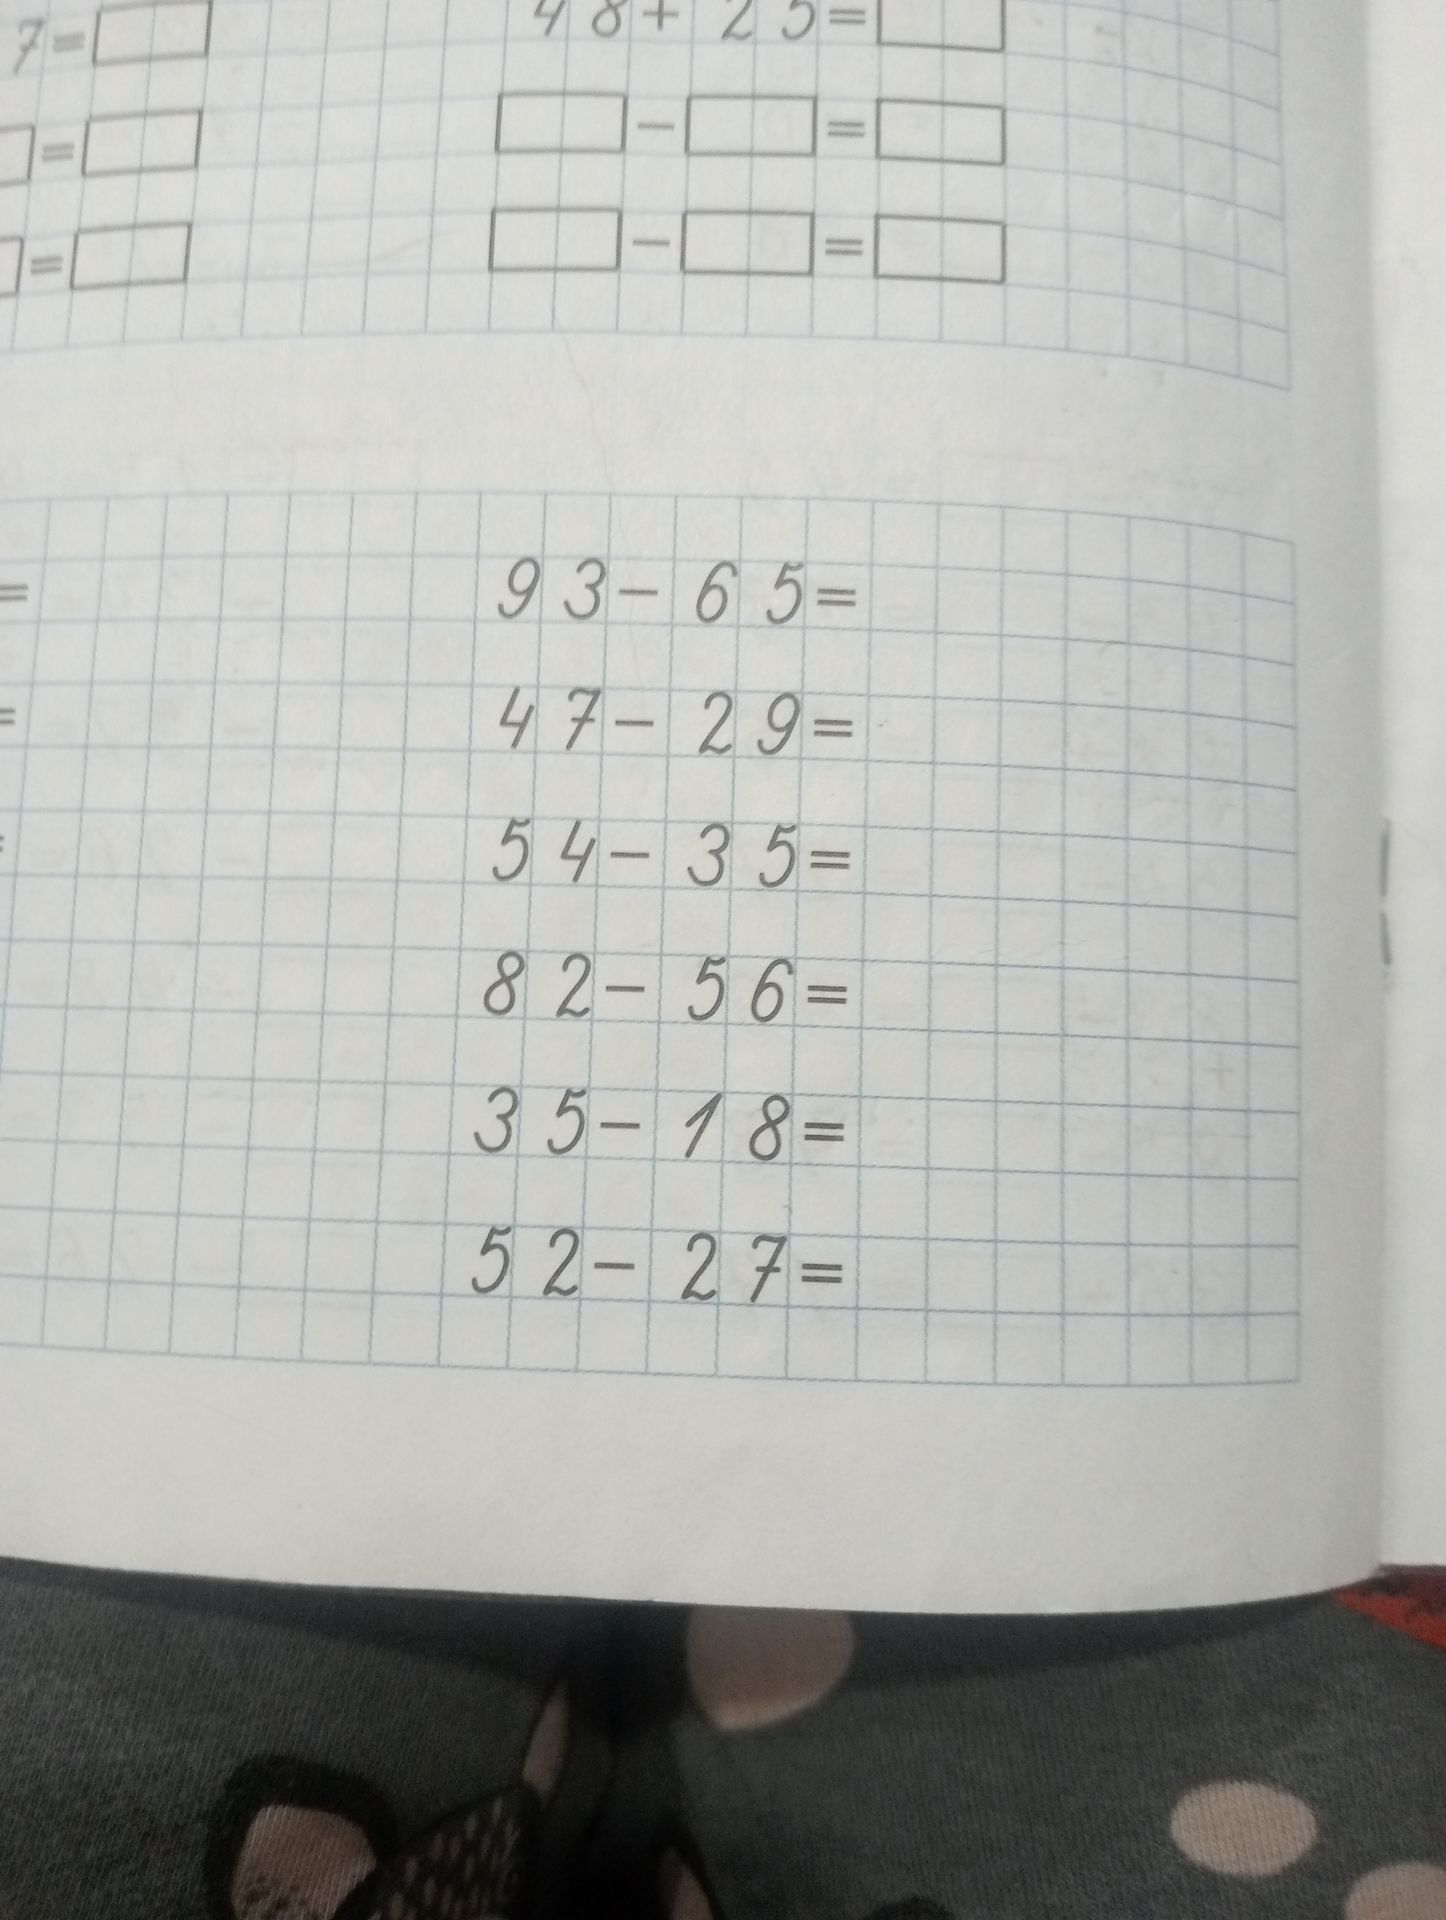 7=
48+25=
=
-=
=
-=
=
93-65=
=
47-29=
=
54-35=
82-56=
35-18=
52-27=